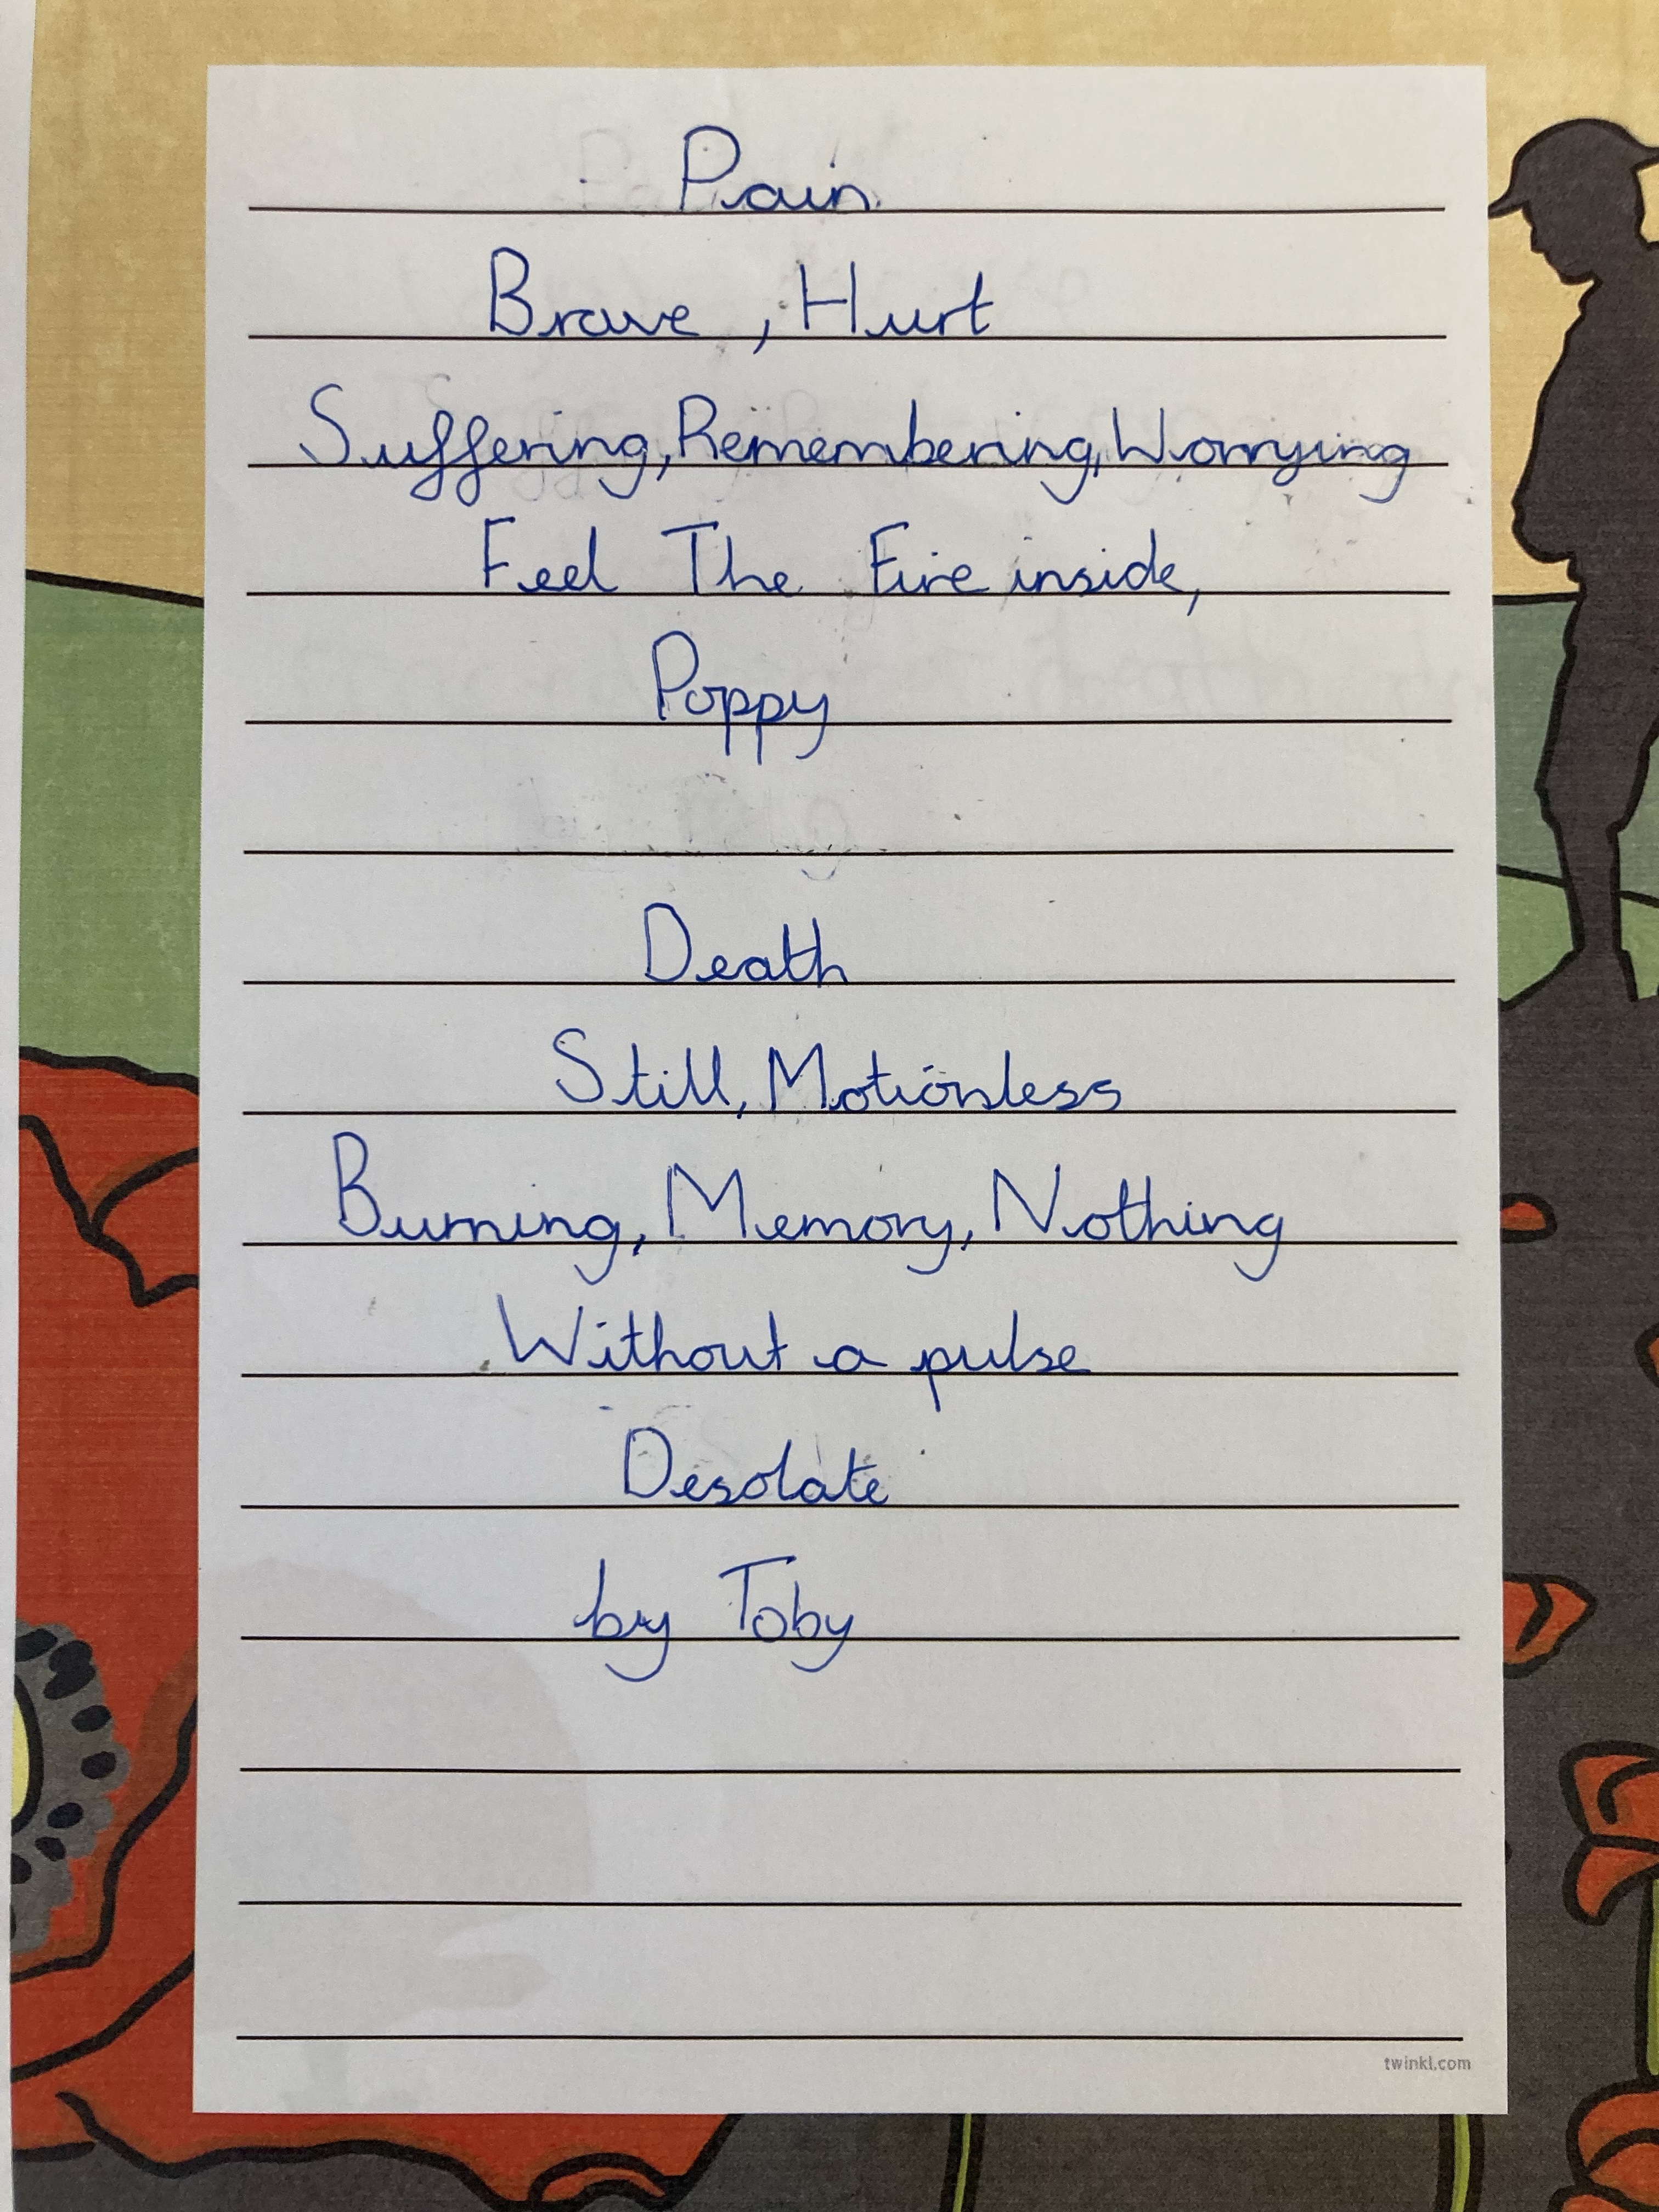 Pain
Brave, Hurt
Suffering, Remembering, Worrying
Feel The Fire inside,
Poppy
Death
Still, Motionless
Burning, Memory, Nothing
Without a pulse
Desolate
by Toby
twinkl.com